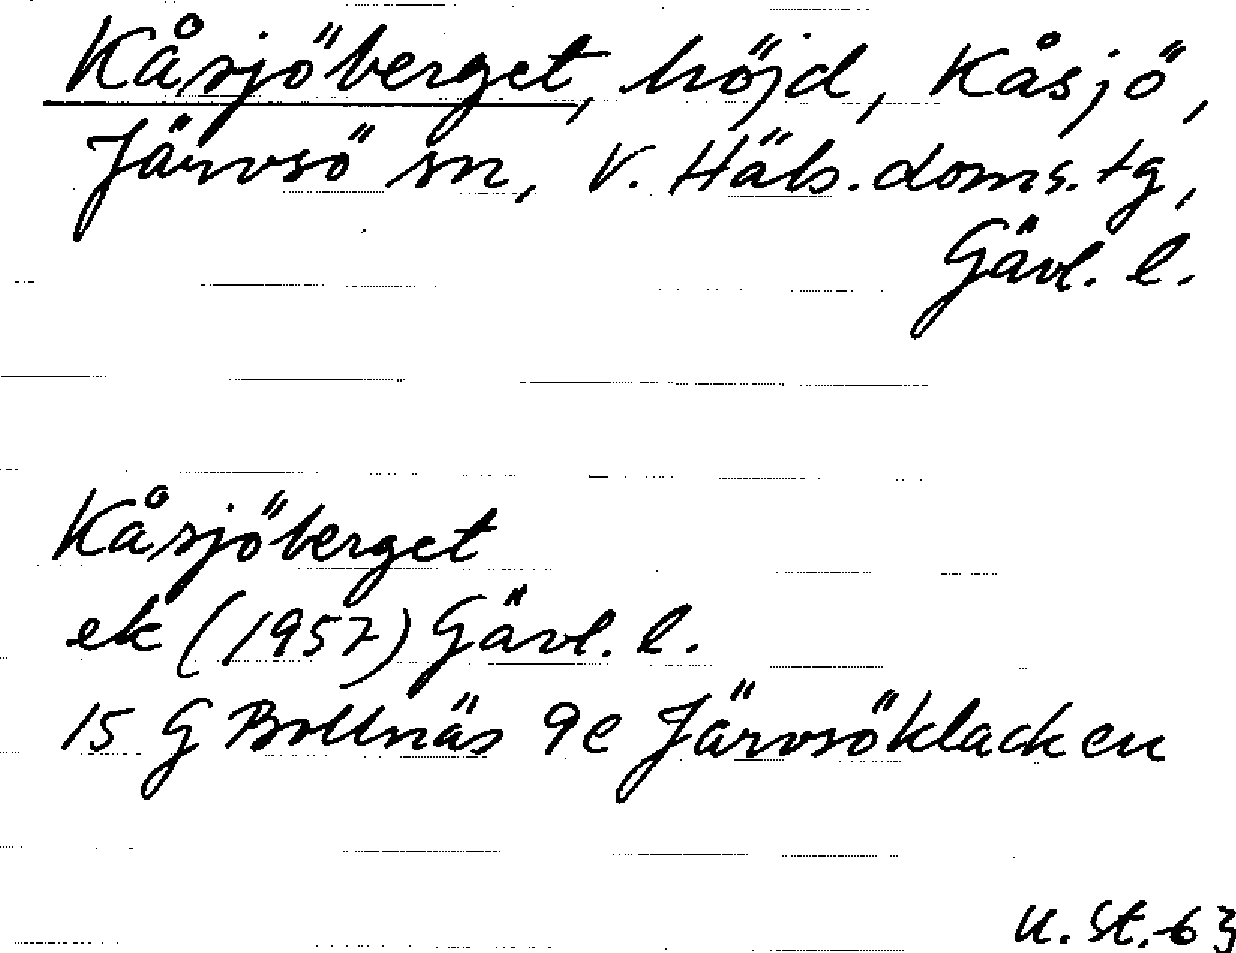 Kåsjöberget, höjd, Kåsjö,
Järvsö sn, V. Häls. doms. tg,
Gävl. l.
Kåsjöberget
ek (1957) Gävl. l.
15 G Bollnäs 9e Järvsöklacken
U. St. 63